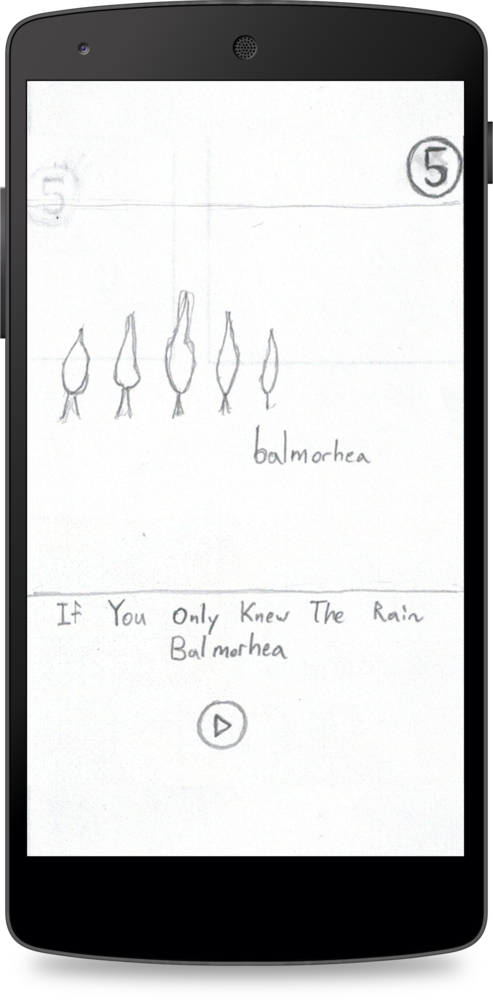 5
5
balmorhea
If You Only Knew The Rain
Balmorhea